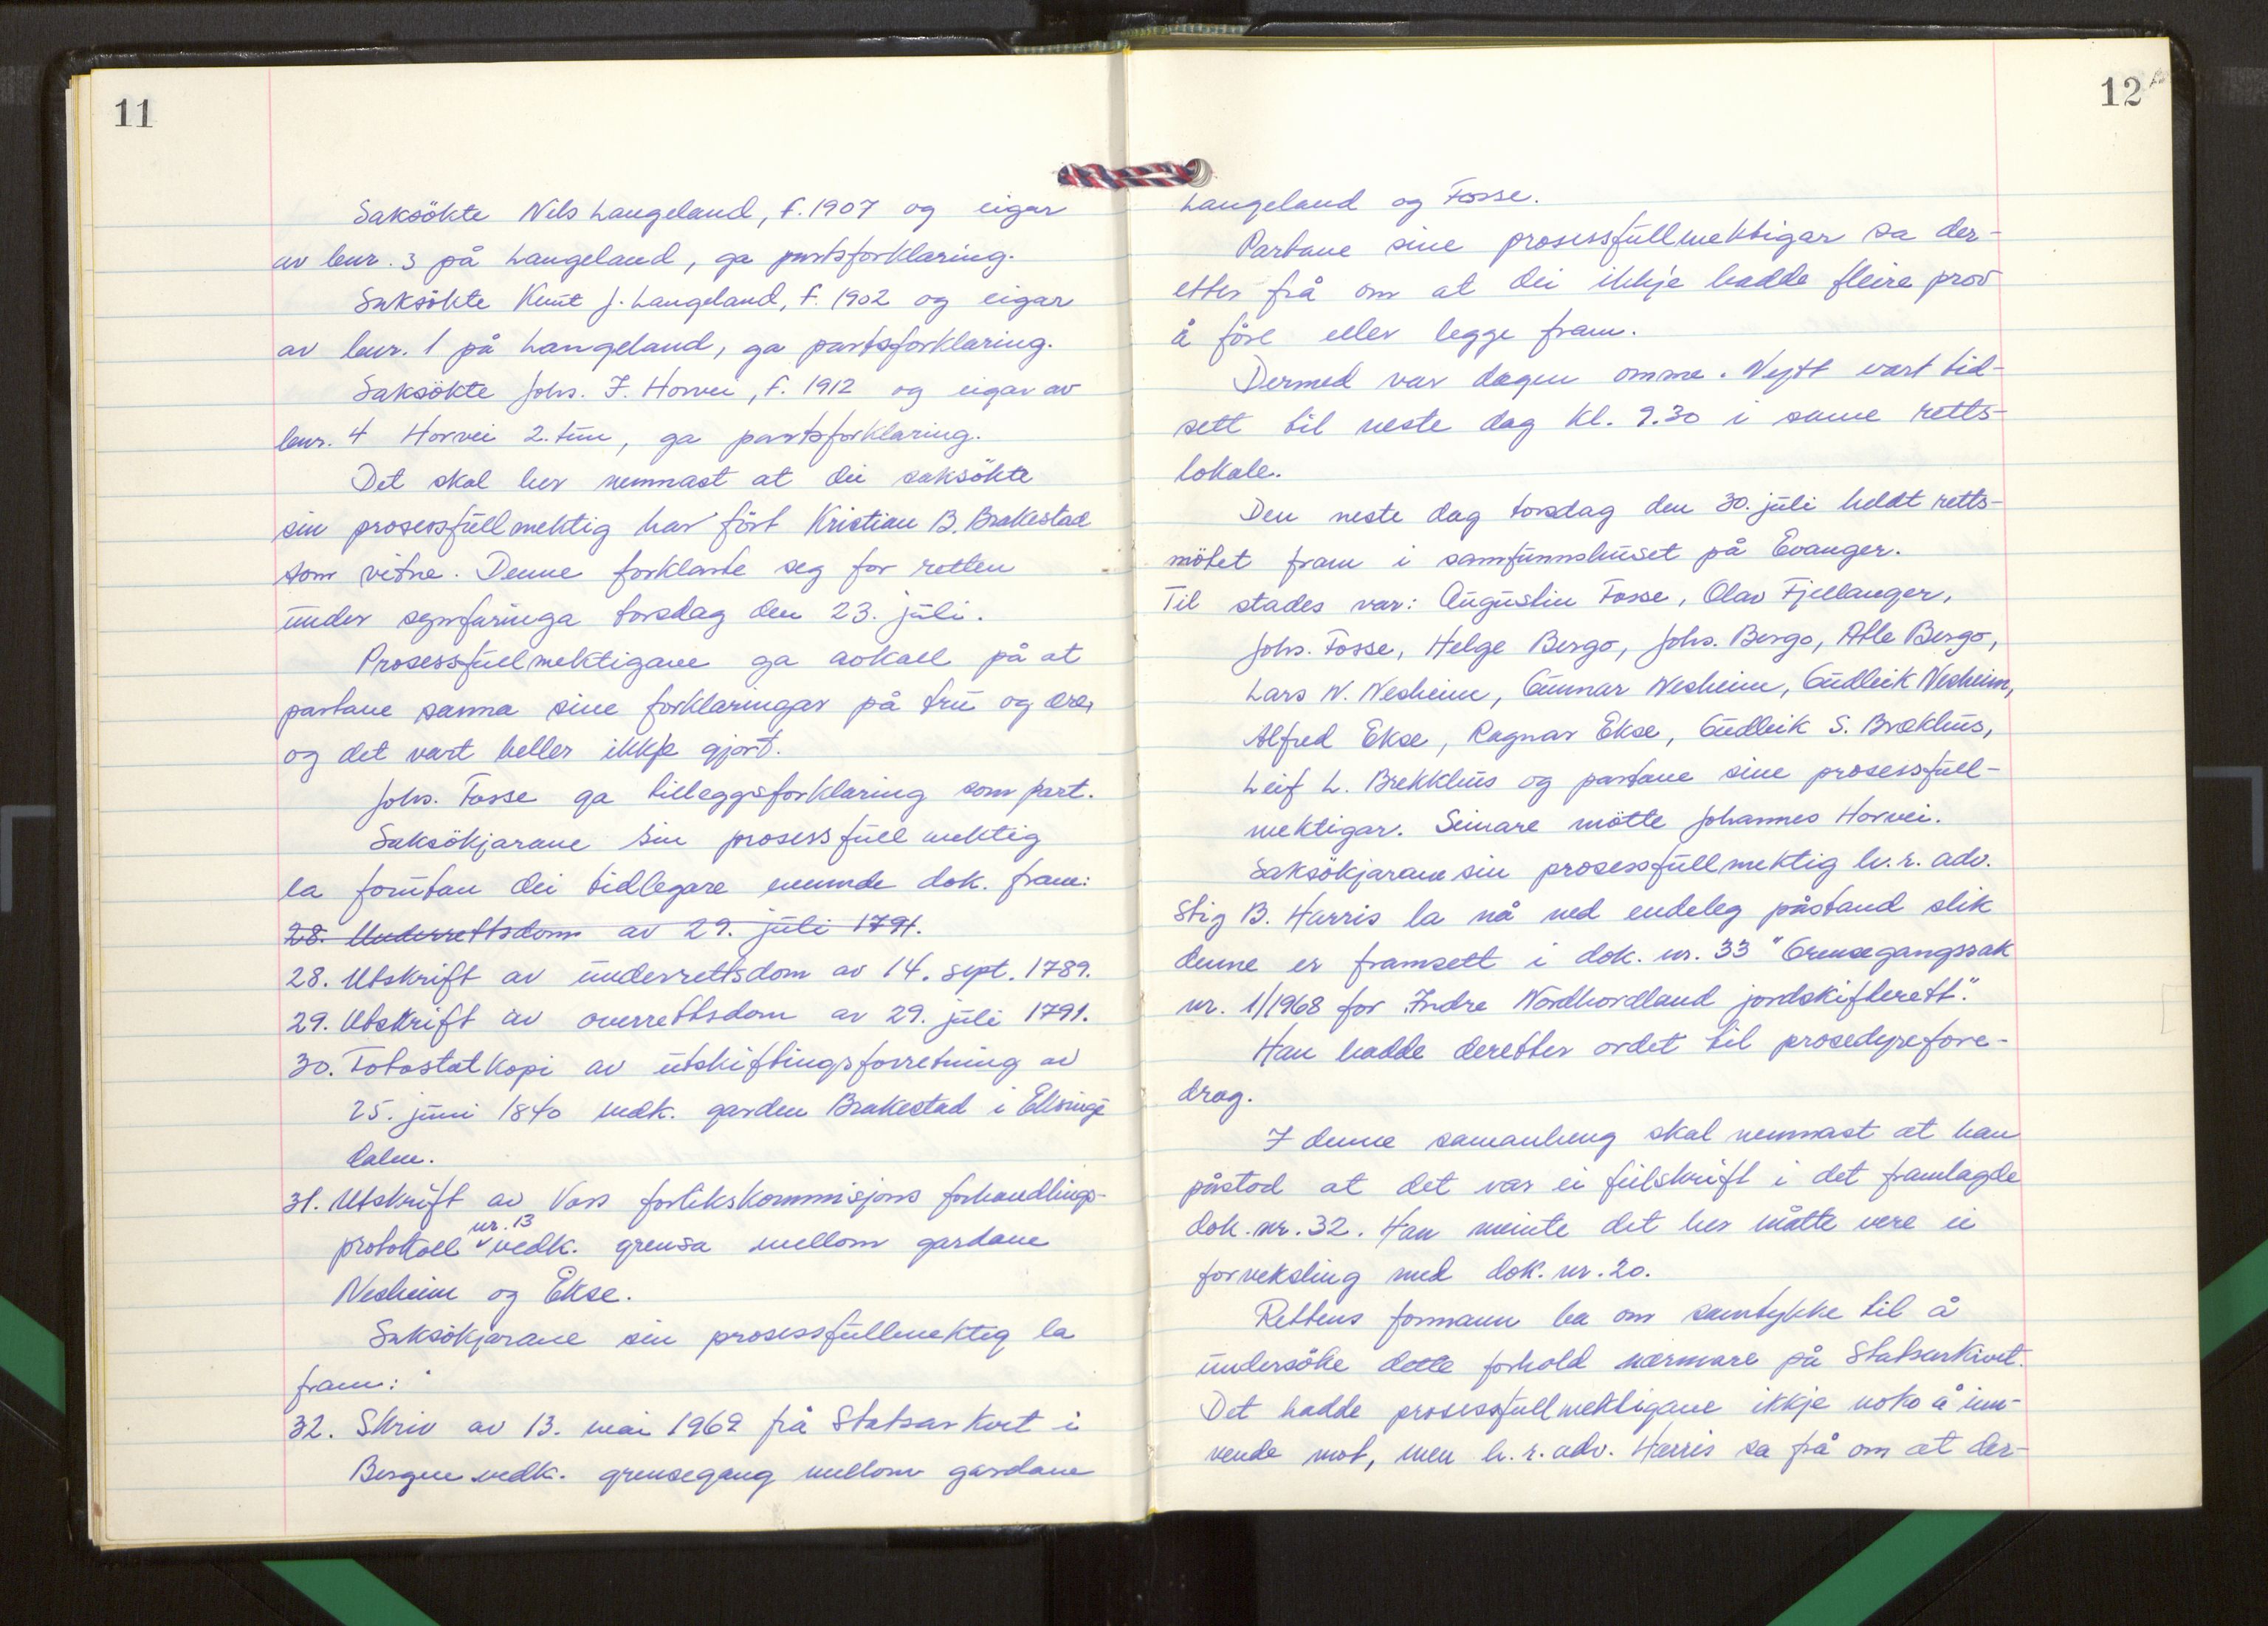 11
Saksökte Nils Langeland, f. 1907 og eigar
av bnr. 3 på Langeland, ga partsforklaring.
Saksökte Knut J. Langeland, f. 1902 og eigar
av bnr. 1 på Langeland, ga partsforklaring.
Saksökte Johs. I. Horvei, f. 1912 og eigar av
bnr. 4 Horvei 2. tun, ga partsforklaring.
Det skal her nemnast at dei saksökte
sin prosessfullmektig har fört Kristian B. Brakestad
som vitne. Denne forklarte seg for retten
under synfaringa torsdag den 23. juli.
Prosessfullmektigane ga avkall på at
partane sanna sine forklaringar på tru og ære,
og det vart heller ikkje gjort.
Johs. Fosse ga tilleggsforklaring som part.
Saksökjarane sin prosessfullmektig
la forutan dei tidlegare nemnde dok. fram:
28. Underrettsdom av 29. juli 1791.
28. Utskrift av underrettsdom av 14. sept. 1789.
29. Utskrift av overrettsdom av 29. juli 1791.
30. Fotostatkopi av utskiftingsforretning av
25. juni 1840 vedk. garden Brakestad i Eksinge
dalen.
31. Utskrift av Voss forlikskommisjons forhandlings-
nr. 13
protokoll vedk. grensa mellom gardane
Nesheim og Ekse.
Saksökjarane sin prosessfullmektig la
fram:
32. Skriv av 13. mai 1969 frå Statsarkivet i
Bergen vedk. grensegang mellom gardane
12
Langeland og Fosse.
Partane sine prosessfullmektigar sa der-
etter frå om at dei ikkje hadde fleire prov
å före eller legge fram.
Dermed var dagen omme. Nytt vart tid-
sett til neste dag kl. 9.30 i same retts-
lokale.
Den neste dag torsdag den 30. juli heldt retts-
mötet fram i samfunnshuset på Evanger.
Til stades var: Augustin Fosse, Olav Fjellanger,
Johs. Fosse, Helge Bergo, Johs. Bergo, Atle Bergo,
Lars N. Nesheim, Gunnar Nesheim, Gudleik Nesheim,
Alfred Ekse, Ragnar Ekse, Gudleik S. Brækhus,
Leif L. Brekkhus og partane sine prosessfull-
mektigar. Seinare mötte Johannes Horvei.
Saksökjarane sin prosessfullmektig h.r. adv.
Stig B. Harris la nå ned endeleg påstand slik
denne er framsett i dok. nr. 33 "Grensegangssak
nr. 1/1968 for Indre Nordhordland jordskifterett".
Han hadde deretter ordet til prosedyrefore-
drag.
I denne samanheng skal nemnast at han
påstod at det var ei feilskrift i det framlagde
dok. nr. 32. Han meinte det her måtte vere ei
forveksling med dok. nr. 20.
Rettens formann ba om samtykke til å
undersöke dette forhold nærmare på Statsarkivet.
Det hadde prosessfullmektigane ikkje noko å inn-
vende mot, men h.r. adv. Harris sa frå om at der-